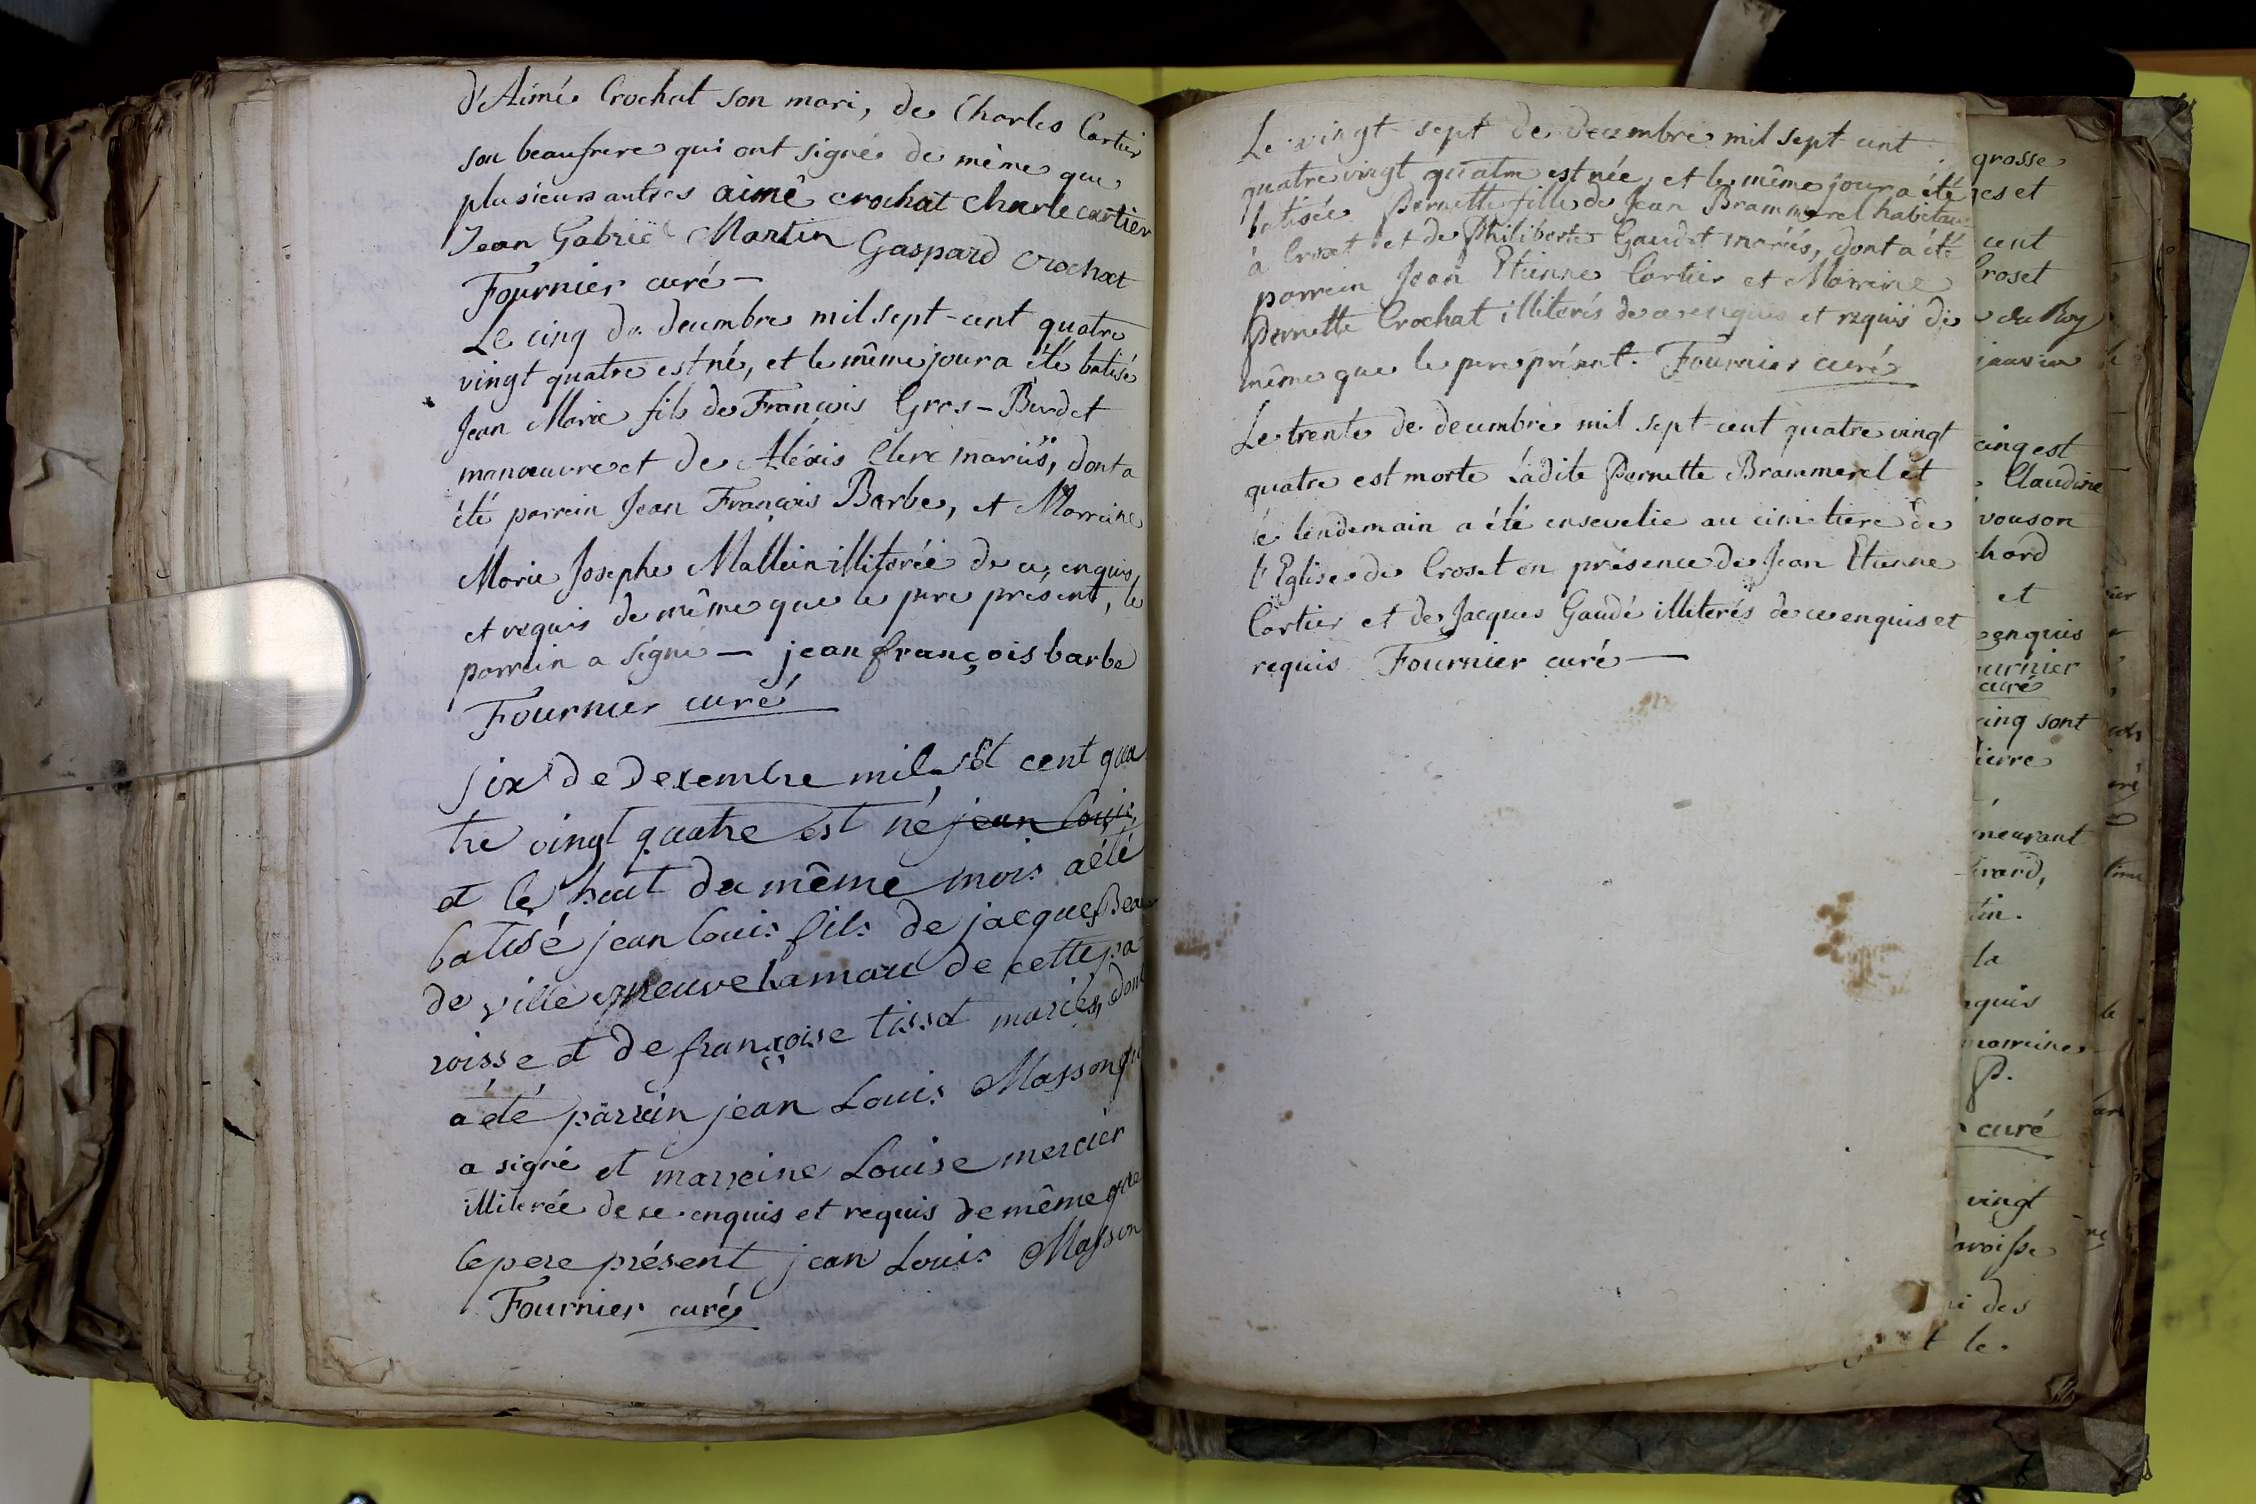 d'Aimé Crochat son mari, de Charles Cartier
son beaufrere qui ont signé de même que
plusieurs autres aimé crochat Charle cartier
Jean Gabriel Martin Gaspard crochat
Fournier curé —
Le cinq de decembre mil sept-cent quatre
vingt quatre est né, et le même jour a été batisé
Jean Marie fils de François Gros-Burdet
manoeuvre et de Aléxis Clerc mariés, dont a
été parrein Jean François Barbe, et Marreine
Marie Josephe Mallein illiterée de ce enquis
et requis de même que le pere présent, le
parrein a signé — jean françois barbe
Fournier curé
six de decembre mil set cent qua
tre vingt quatre est né jean louis
et le huit du même mois a été
batisé jean louis fils de jacques Beau
de ville neuve hamau de cette pa
roisse et de françoise tissot mariés, dont
a été parrein jean Louis Masson qui
a signé et marreine Louise mercier
illiterée de ce enquis et requis de même que
le pere présent jean Louis Masson
Fournier curé
Le vingt-sept de decembre mil sept cent
quatre vingt quatre est née, et le même jour a été
batisée Pernette fille de Jean Brammerel habitant
à Croset et de Philiberte Gaudet mariés, dont a été
parrein Jean Etienne Cartier et Marreine
Pernette Crochat illiterés de ce enquis et requis de
même que le pere présent. Fournier curé
Le trente de decembre mil sept-cent quatre vingt
quatre est morte ladite Pernette Brammerel et
le lendemain a été ensevelie au cimetiere de
l'Eglise de Croset en présence de Jean Etienne
Cartier et de Jacques Gaudé illiterés de ce enquis et
requis Fournier curé —
grosse
es et
cent
Croset
du Roy
cinq est
Claudine
vouson
hard
et
enquis
urnier
curé
cinq sont
ierre
meurant
irard,
tin.
la
quis
marreine
P.
curé
vingt
Paroisse
des
le